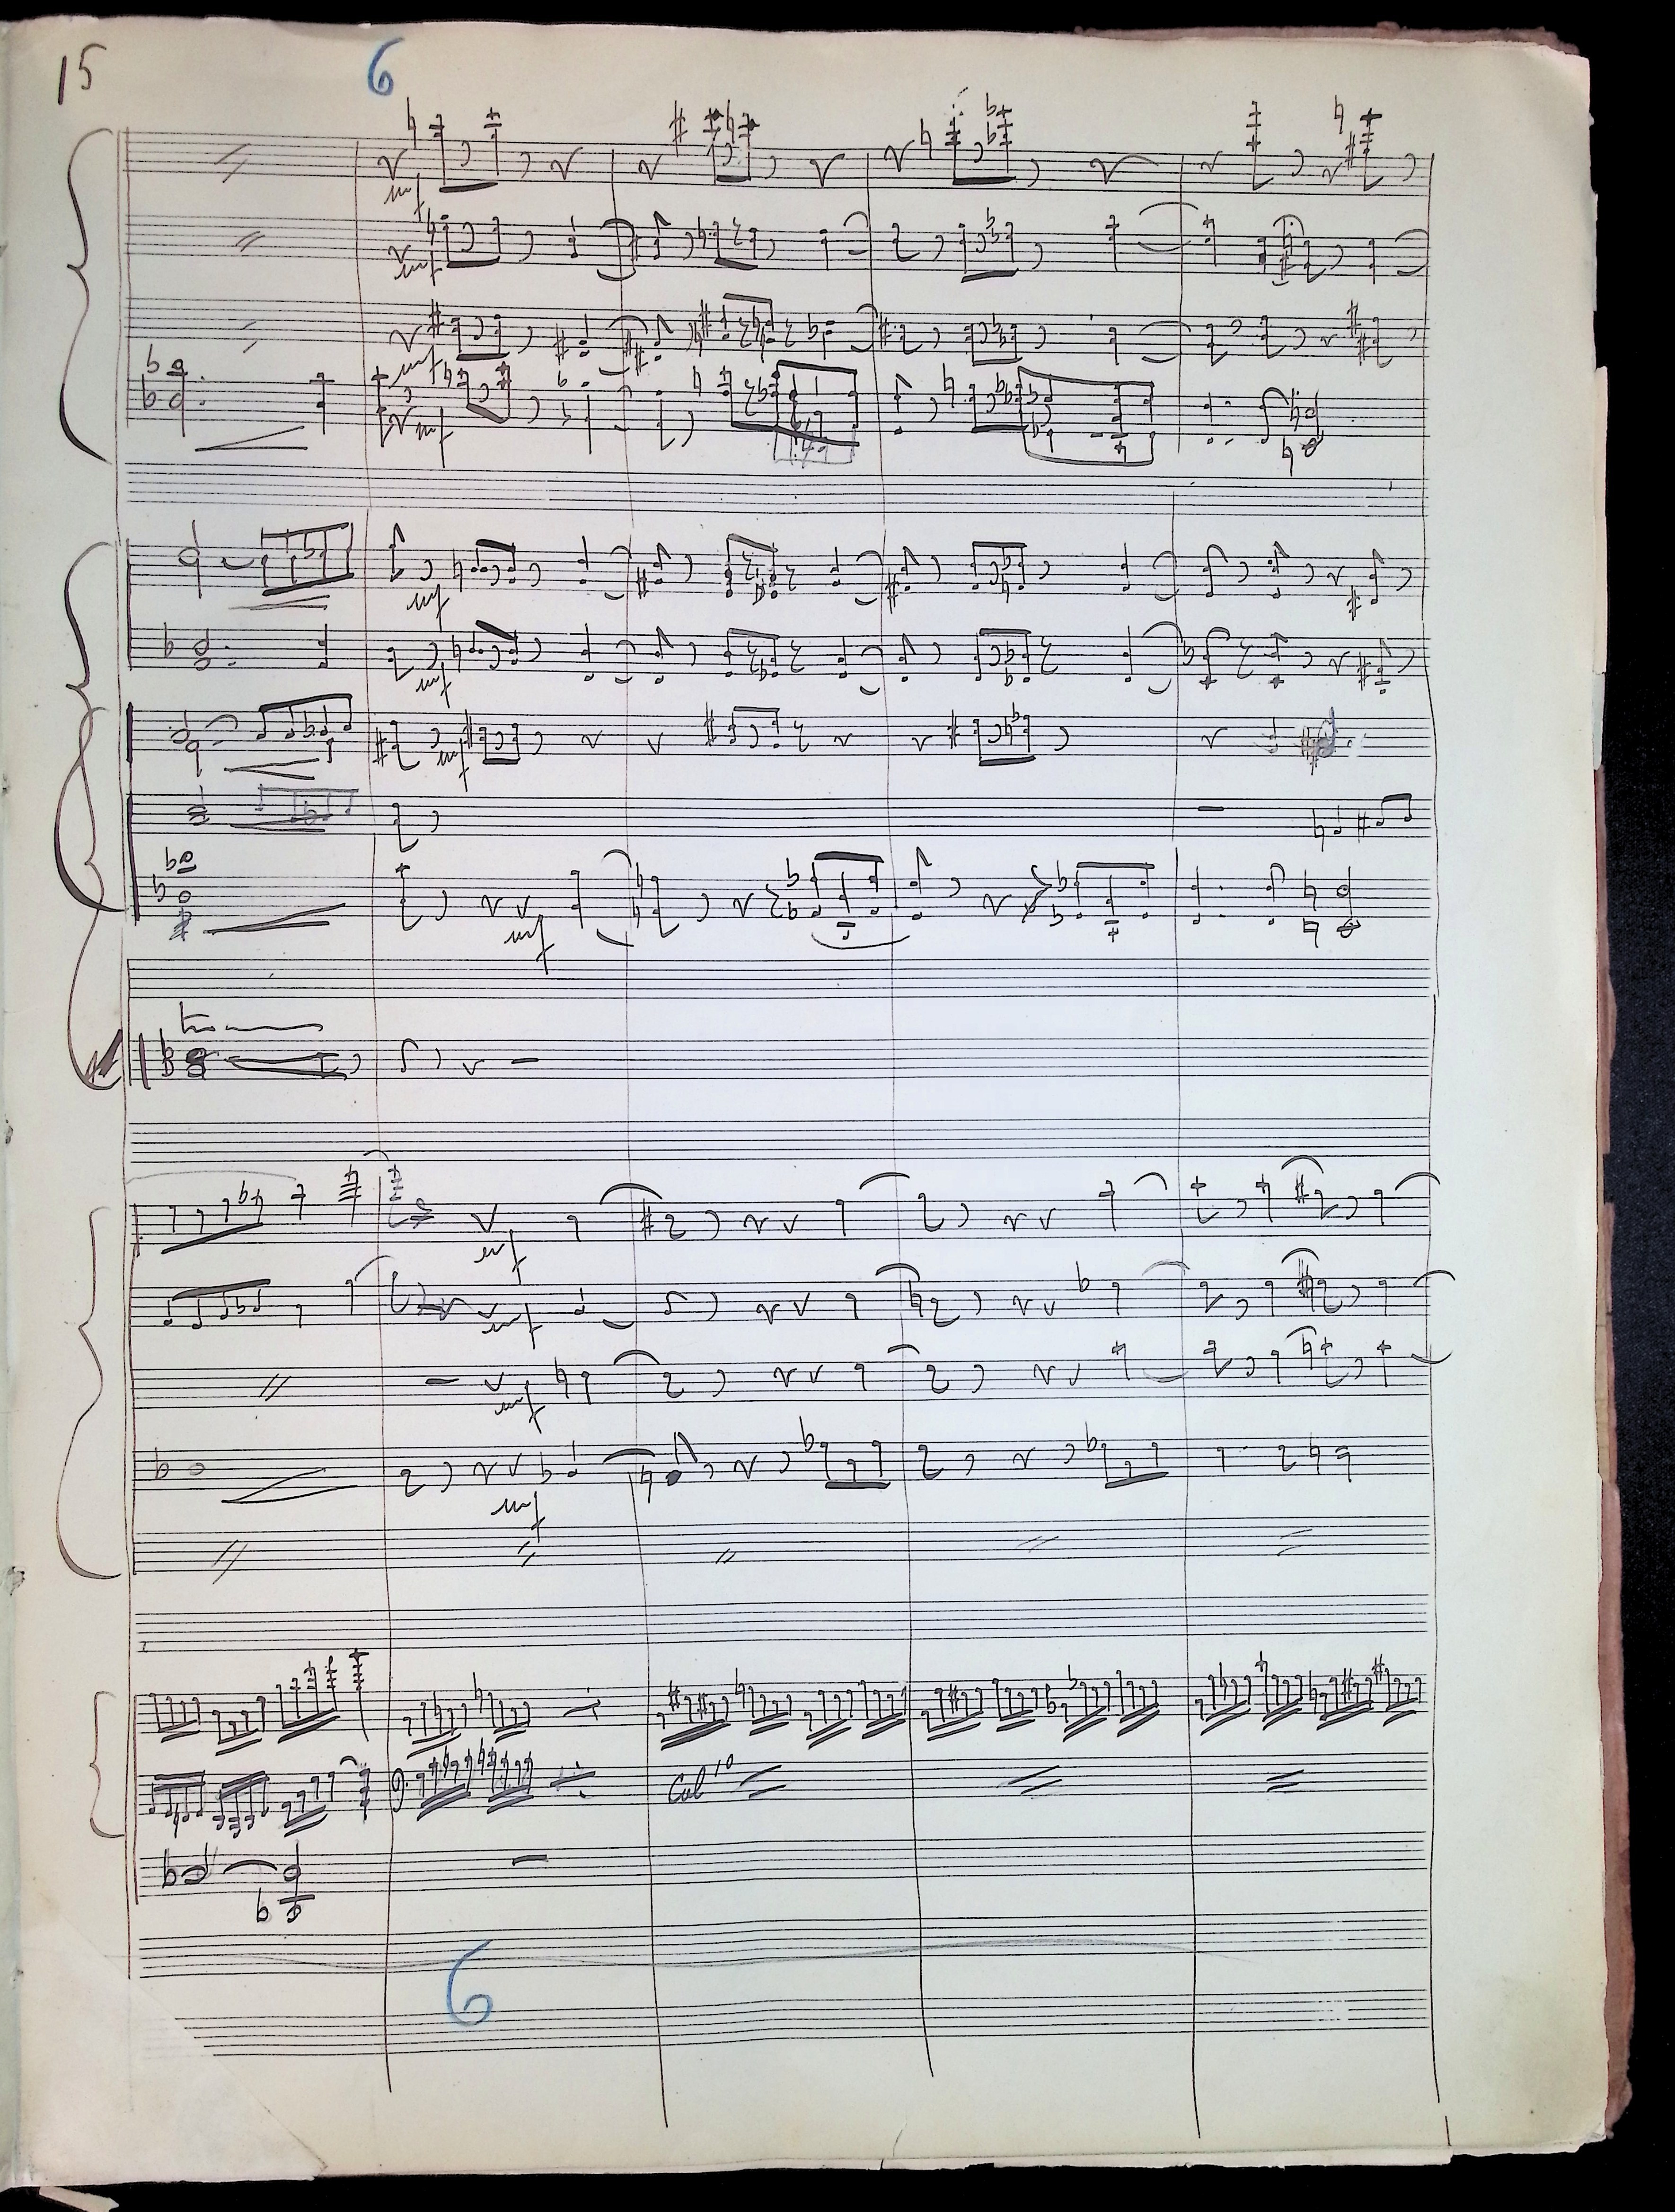 15
6
mf
mf
mf
mf
mf
mf
mf
mf
tr
mf
mf
mf
mf
Col 10
6